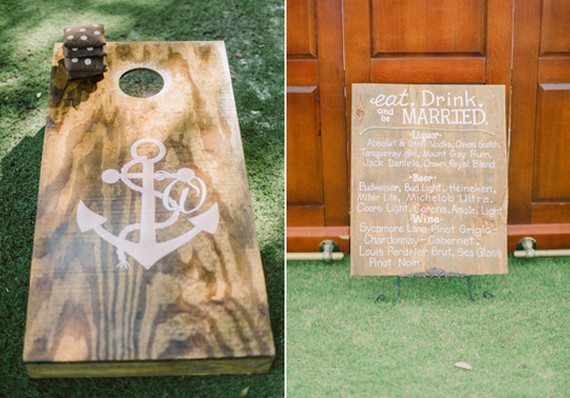 eat, Drink,
and be MARRIED.
·Liquor·
Absolut & Stoli Vodka, Chivas Scotch,
Tanqueray Gin, Mount Gay Rum,
Jack Daniels, Crown Royal Blend
·Beer·
Budweiser, Bud Light, Heineken,
Miller Lite, Michelob Ultra,
Coors Light, Corona, Amstel Light
·Wine·
Sycamore Lane Pinot Grigio-
Chardonnay-Cabernet,
Louis Perdrier Brut, Sea Glass
Pinot Noir